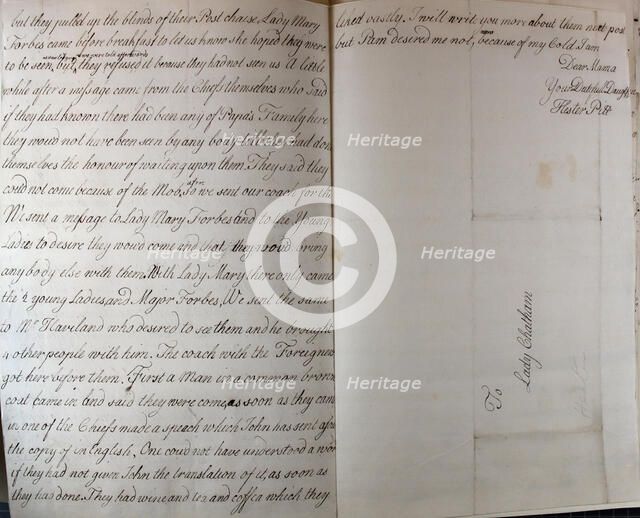 but they pulled up the blinds of their Post chaise, Lady Mary
Forbes came before breakfast to let us know she hoped they were
to be seen, but, they refused it because they had not seen us A little
while after a message came from the Chiefs themselves who said
if they had known there had been any of Papa's Family here
they would not have been seen by any body till they had done
themselves the honour of waiting upon them. They said they
could not come because of the Mob, so we sent our coach for th
We sent a message to Lady Mary Forbes and to the Young
Ladies to desire they would come and that they would bring
any body else with them. With Lady Mary there only came
the 2 young Ladies and Major Forbes, We sent the same
to Mr Haviland who desired to see them and he brought
4 other people with him. The coach with the Foreigners
got here before them. First a Man in a common brown
coat came in and said they were come, as soon as they came
in one of the Chiefs made a speech which John has sent
the copy of in English. One could not have understood a wor
if they had not given John the translation of it, as soon as
they had done. They had wine and tea and coffea which they
liked vastly. I will writ you more about them next post
but Pam desired me not, because of my Cold. I am
Dear Mama
Your Dutyfull Daughter
Hester Pitt
To Lady Chatham
Heritage
Heritage
Heritage
Heritage
Heritage
Heritage
Heritage
Heritage
C